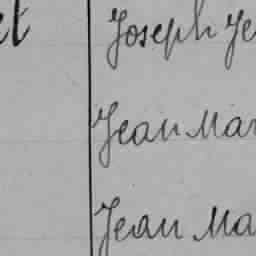 Joseph Je
Jean Mar
Jean Ma